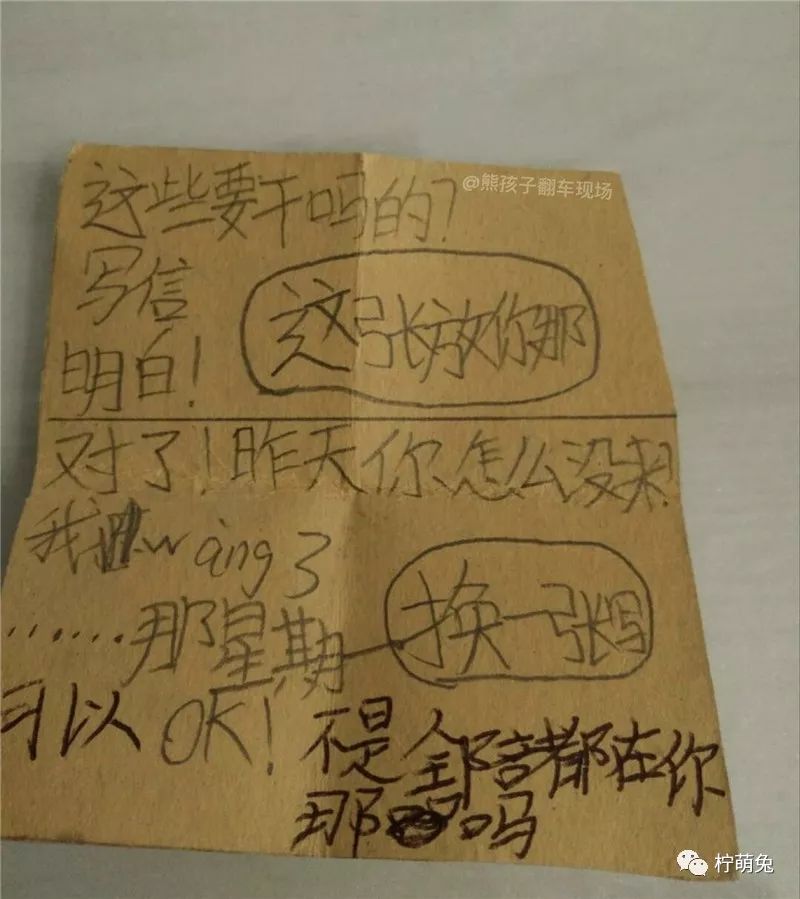 @熊孩子翻车现场
这些要干吗的？
写信
这张放你那
明白！
对了！昨天你怎么没来？
我wàng了
……那星期一
换一张写
可以
OK！
不是全部都在你
那吗
柠萌兔